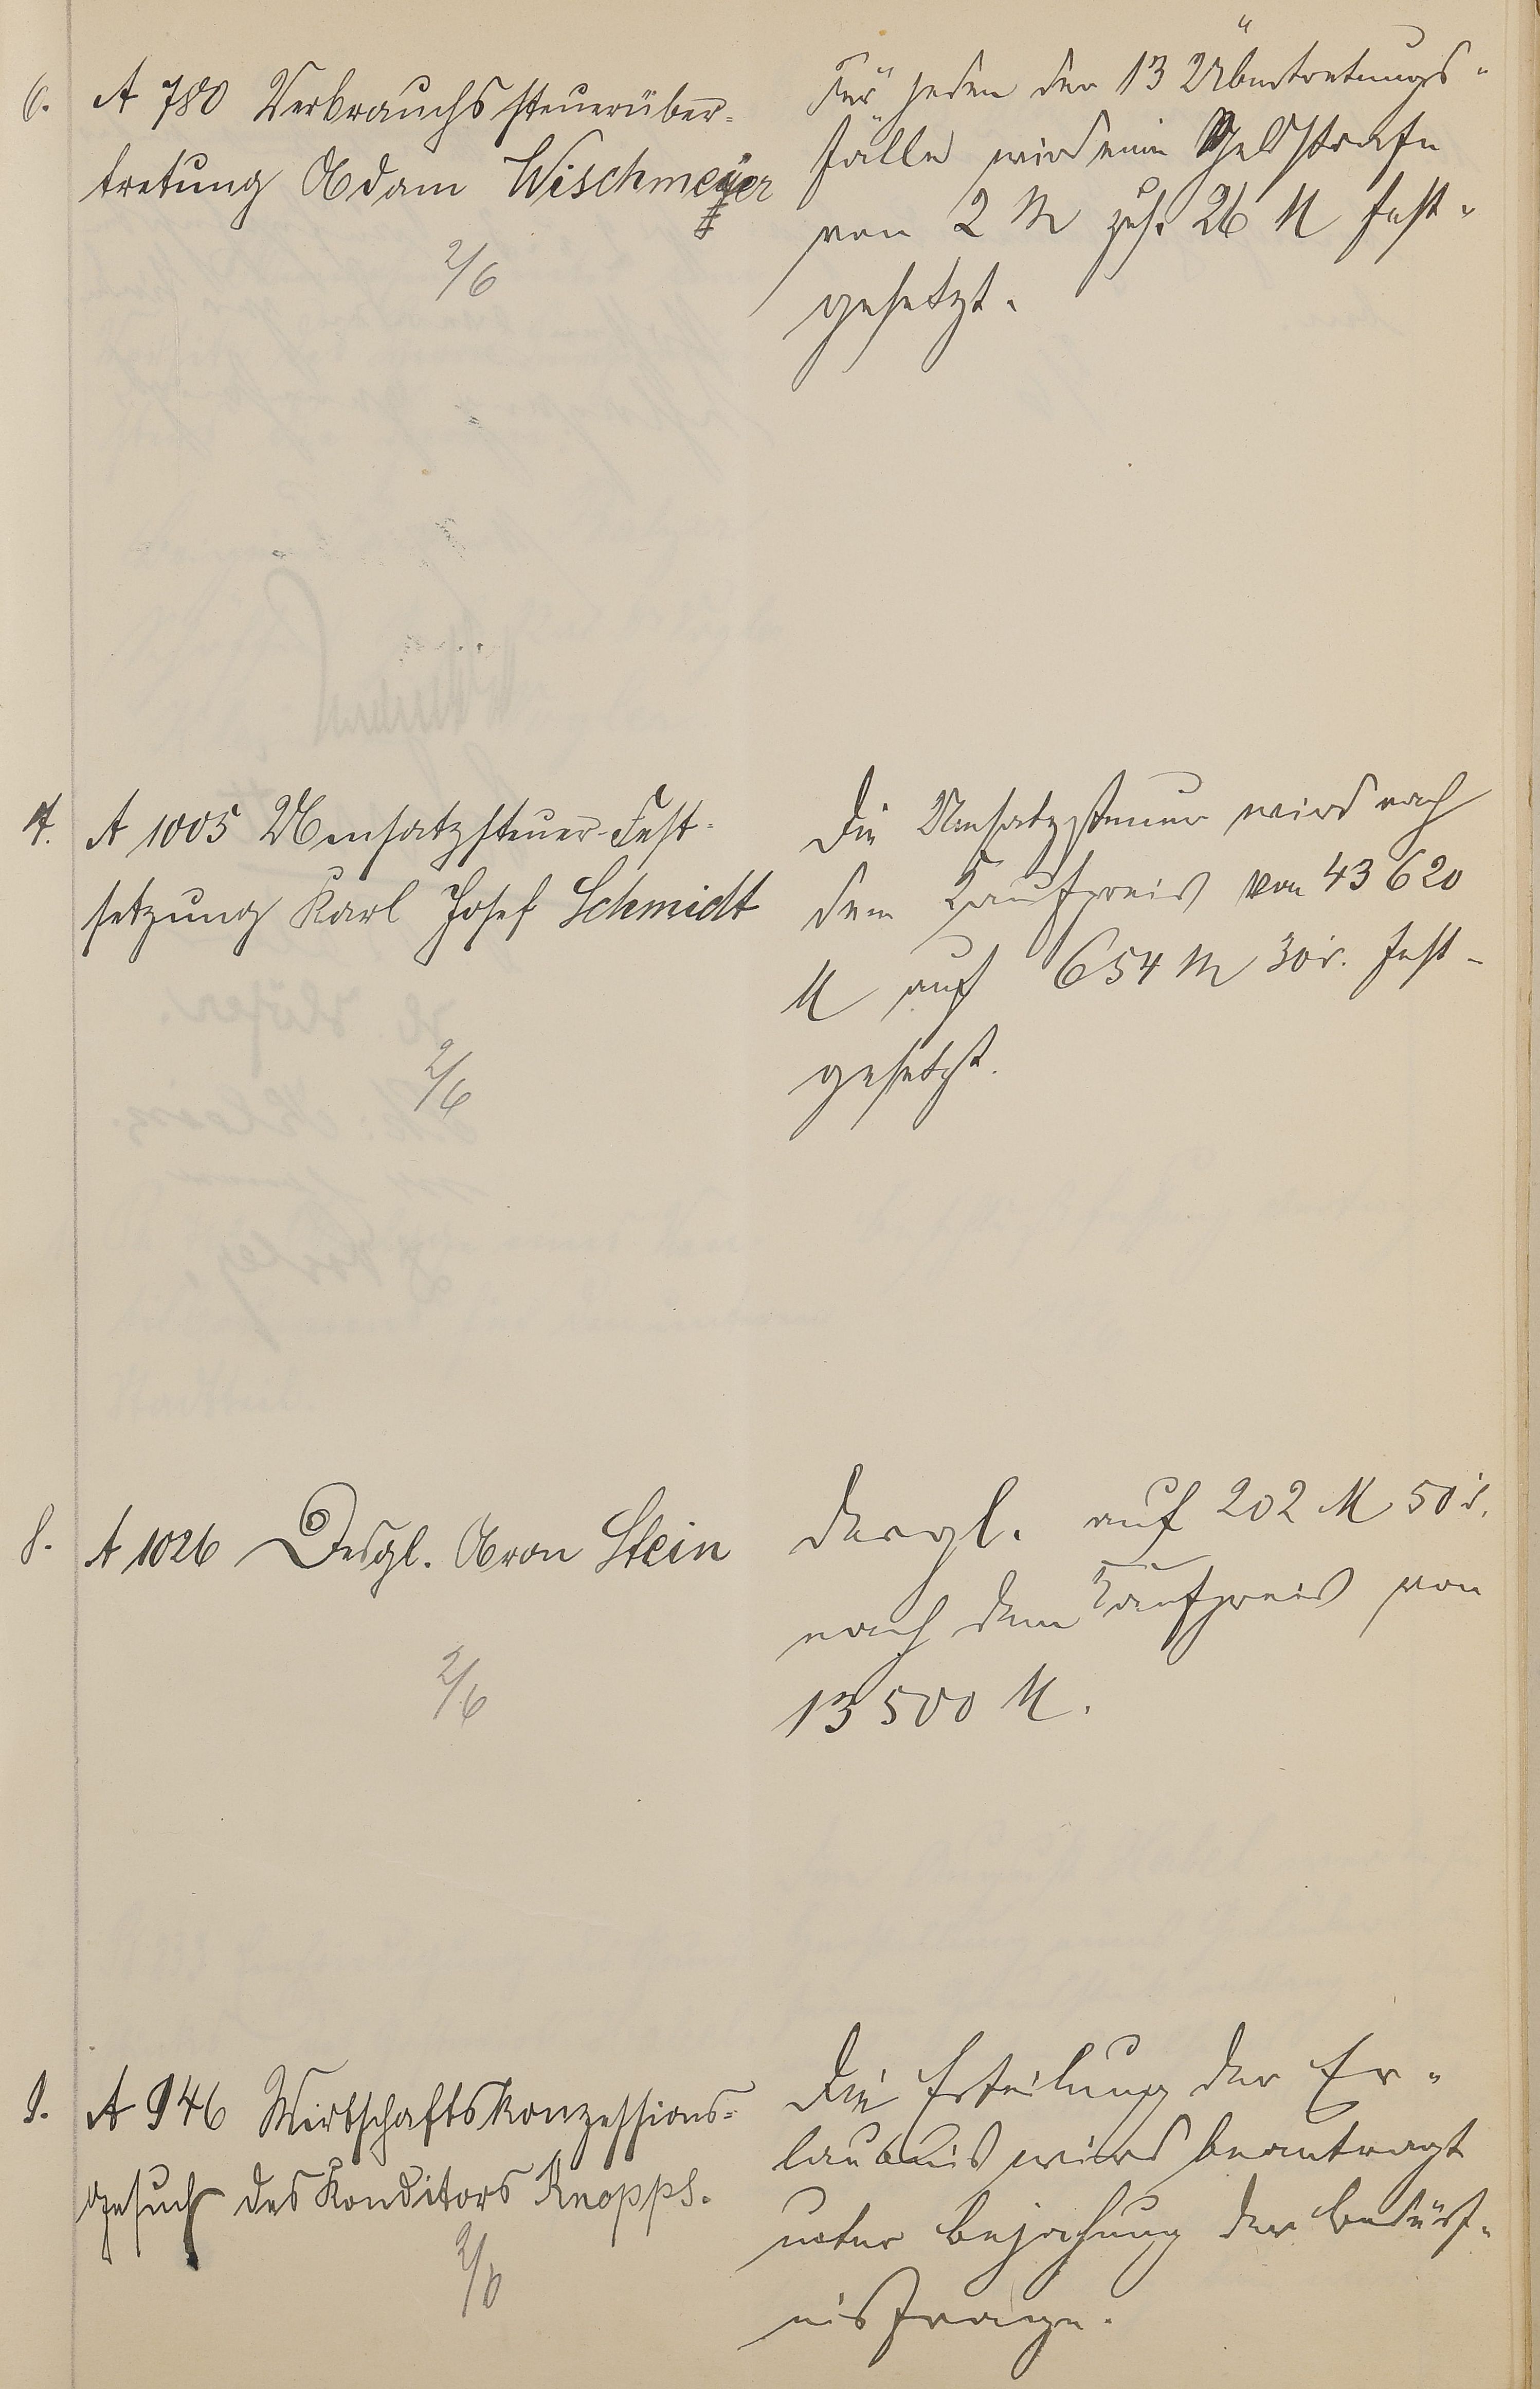 6. A 780 Verbrauchssteuerüber-
tretung Adam Wischmeyer
2/6
Für jeden der 13 Übertretungs-
fälle wird eine Geldstrafe
von 2 M zus. 26 M fest-
gesetzt.
7. A 1005 Umsatzsteuer-Fest-
setzung Karl Josef Schmidt
2/6
Die Umsatzsteuer wird nach
dem Kaufpreis von 43 620
M auf 654 M 30 d. fest-
gesetzt.
8. A 1026 Desgl. Aron Stein
2/6
desgl. auf 202 M 50 d.
nach dem Kaufpreis von
13 500 M.
9. A 946 Wirtschaftskonzessions-
gesuch des Konditors Knopps.
2/6
Die Erteilung der Er-
laubnis wird beantragt
unter Bejahung der Bedürf-
nisfrage.